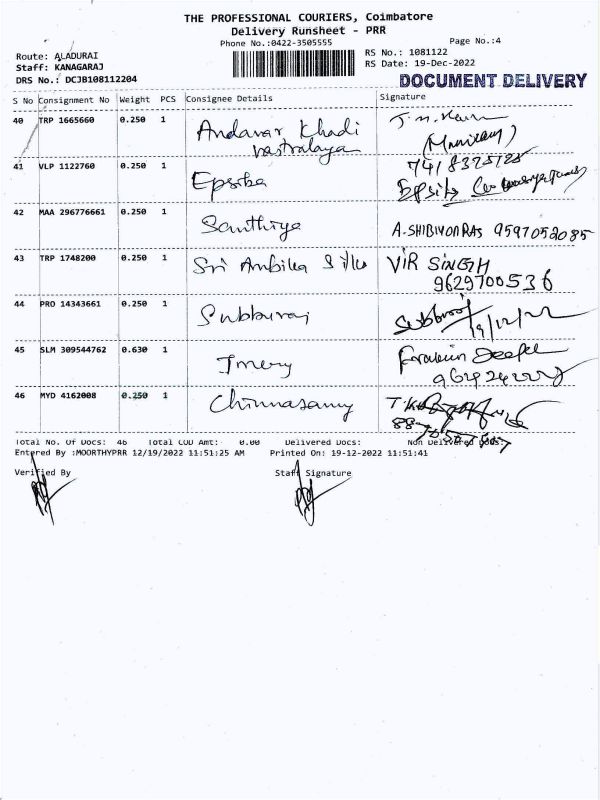 THE PROFESSIONAL COURIERS, Coimbatore
Delivery Runsheet - PRR
Phone No.:0422-3505555
Page No.:4
Route: ALADURAI
RS No.: 1081122
Staff: KANAGARAJ
RS Date: 19-Dec-2022
DRS No.: DCJB108112204
DOCUMENT DELIVERY
S No Consignment No Weight PCS Consignee Details Signature
40 TRP 1665660 0.250 1 Andavar Khadi
vastralaya
41 VLP 1122760 0.250 1 Epsiba
42 MAA 296776661 0.250 1 Santhiya A.SHIBIYONRAS 9597052085
43 TRP 1748200 0.250 1 Sri Ambika Silks VIR SINGH
9629700536
44 PRO 14343661 0.250 1 Subburaj Subburaj
19/12/22
45 SLM 309544762 0.630 1 Imery
46 MYD 4162008 0.250 1 Chinnasamy
Total No. Of Docs: 46 Total COD Amt: 0.00 Delivered Docs: Non Delivered Docs:
Entered By :MOORTHYPRR 12/19/2022 11:51:25 AM Printed On: 19-12-2022 11:51:41
Verified By Staff Signature